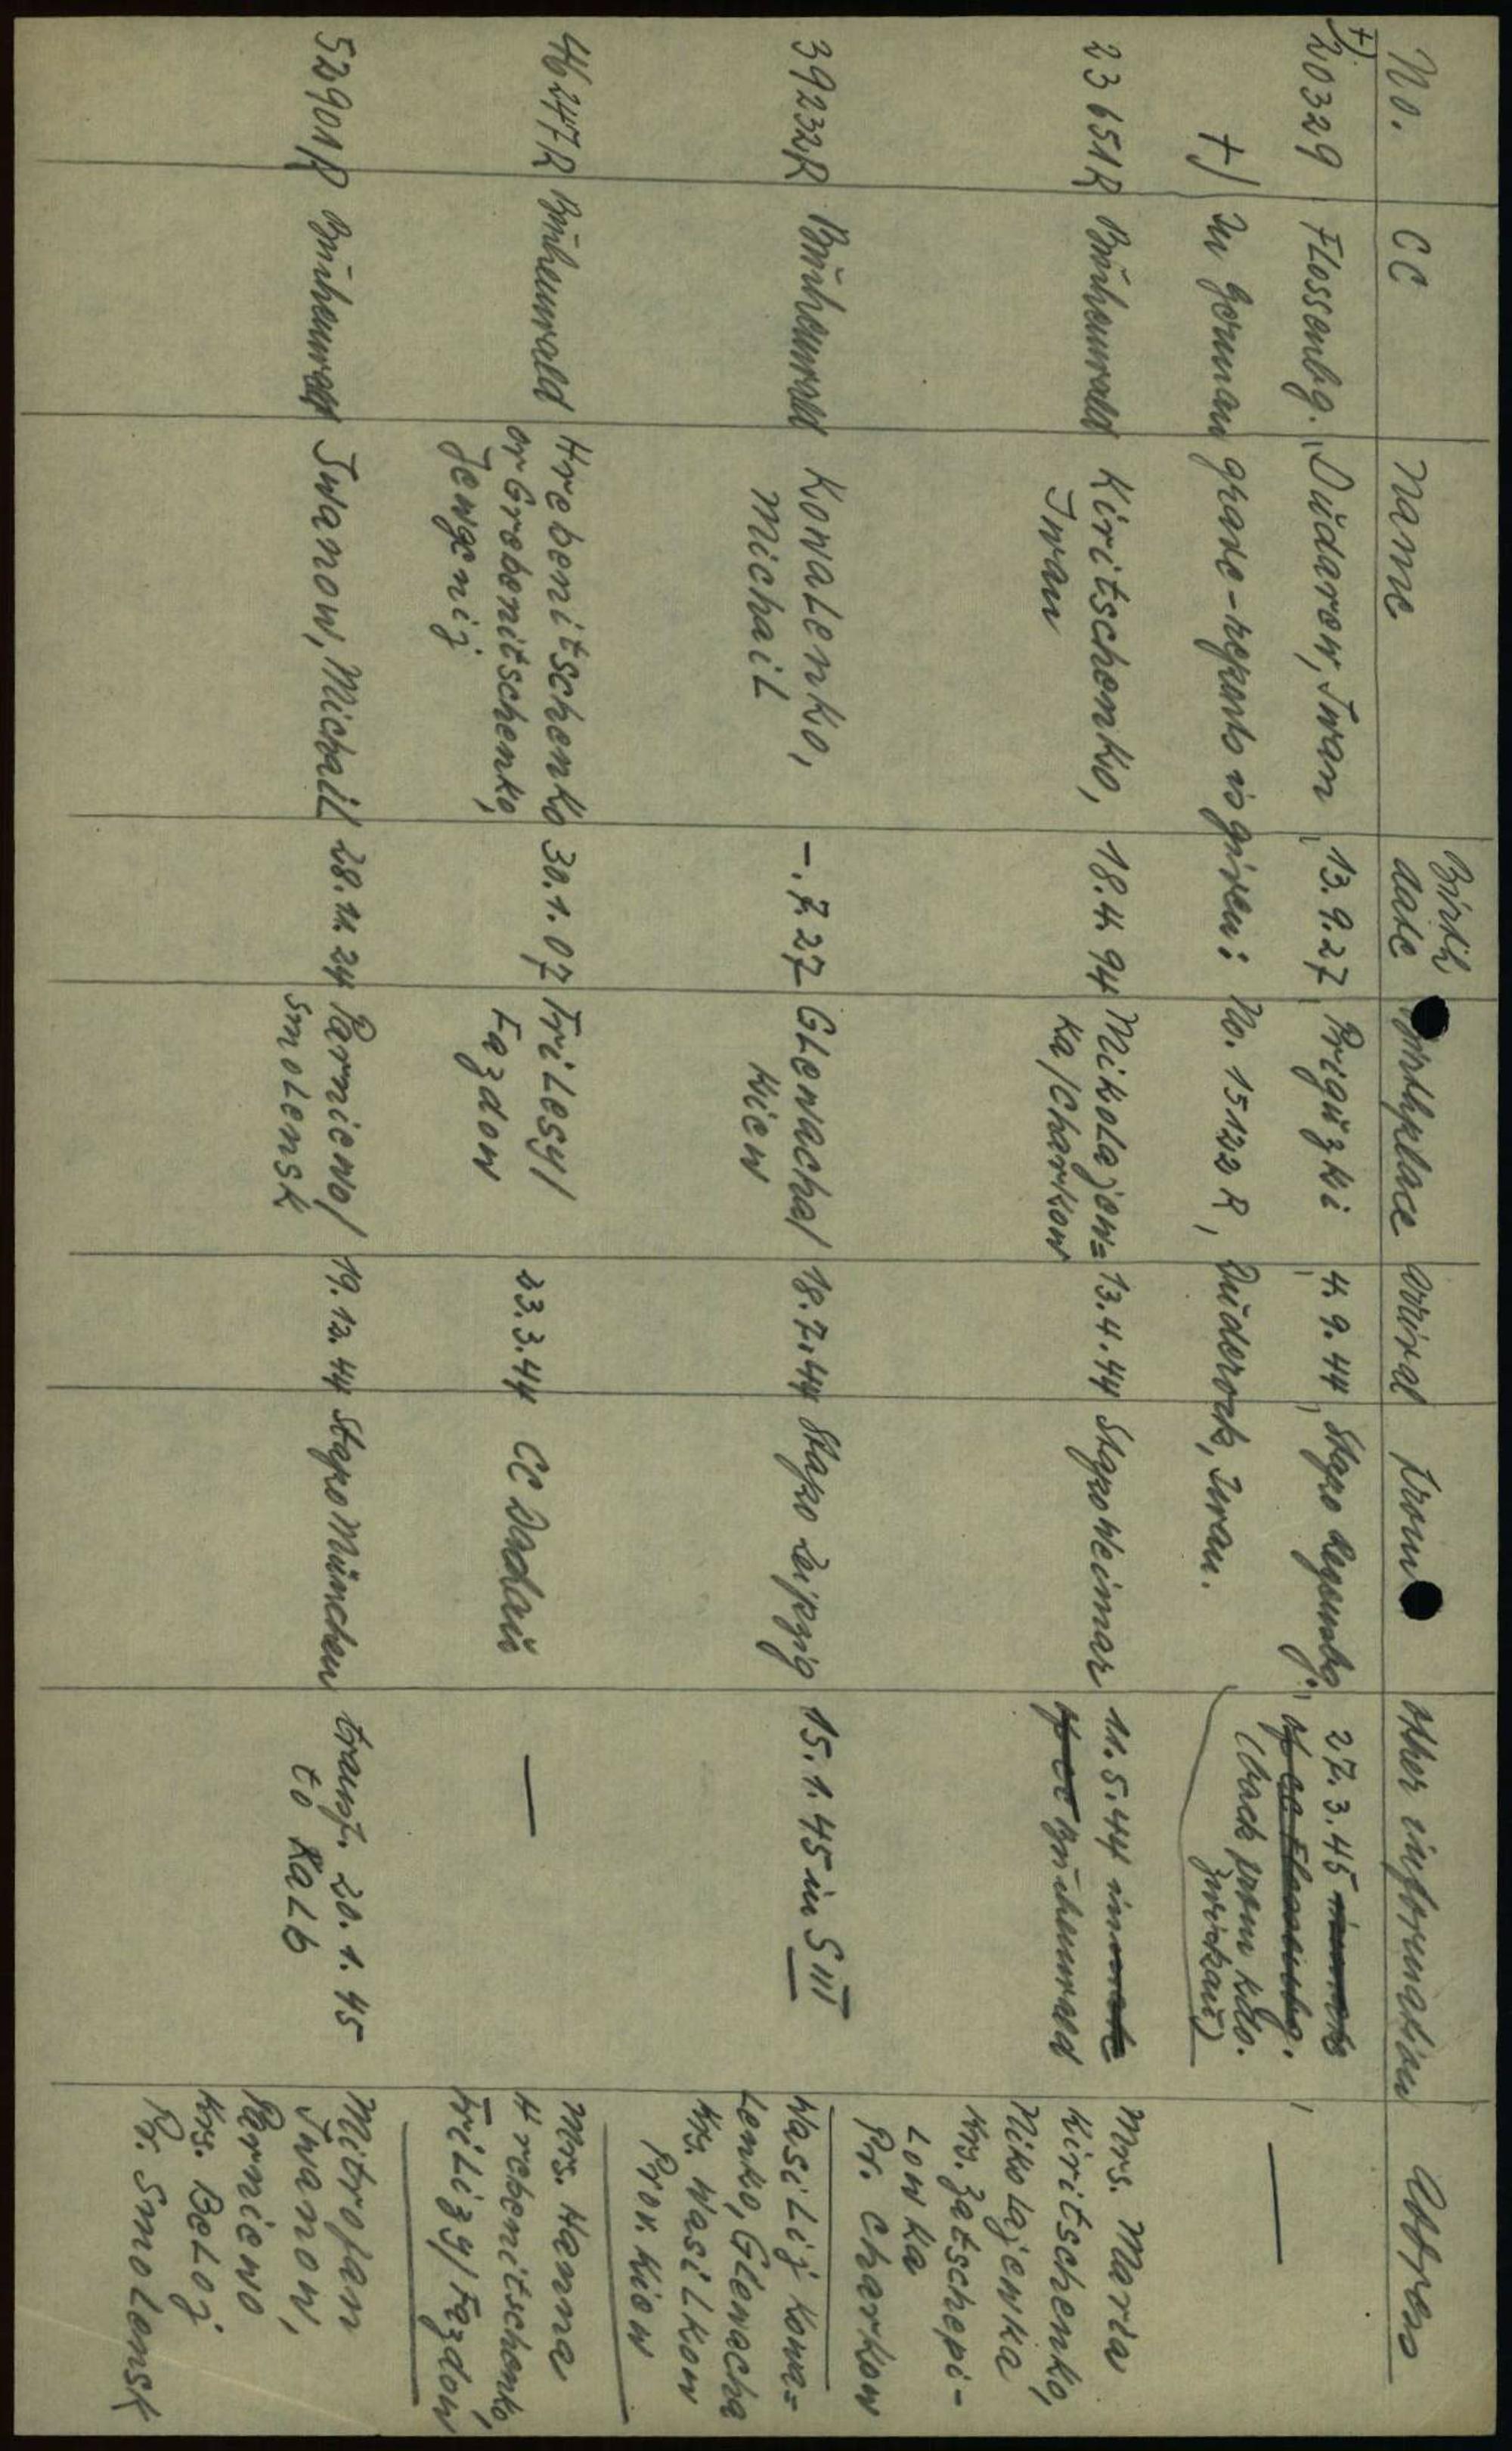 No. CC Name Birth date Birthplace arrival from other information Address
+) 20329 Flossenbg. Dŭdarew, Iwan 13.9.27 Brigŭzki 4.9.44 Stapo Regensbg. 27.3.45
(track from Kdo. Zwickaŭ)
—
+) In german grave-reports is given: No. 15122 R, Dŭderock, Iwan.
23651R Bŭchenwald Kiritschenko, Iwan 18.4.94 Mikolajow=
ka/Charkow 13.4.44 Stapo Weimar 11.5.44
Bŭchenwald
Mrs. Maria
Kiritschenko,
Nikolajewka
Krs. Zatschepi-
lowka
Pr. Charkow
39232R Bŭchenwald Kowalenko,
Michail —.7.27 Glewacha/
Kiew 18.7.44 Stapo Leipzig 15.1.45 in S III
Wasilij Kowa=
lenko, Glewacha
Krs. Wasilkow
Prov. Kiew
46247R Bŭchenwald Hrebenitschenko
or Grebenitschenko,
Jewgenij 30.1.07 Trilesy/
Fazdow 23.3.44 CC Dachaŭ —
Mrs. Hanna
Hrebenitschenko,
Trilizy/Fazdow
52901R Bŭchenwald Iwanow, Michail 28.11.24 Parniewo/
Smolensk 19.12.44 Stapo München transf. 20.1.45
to Kalb
Mitrofan
Iwanow,
Parniewo
Krs. Beloj
Pr. Smolensk